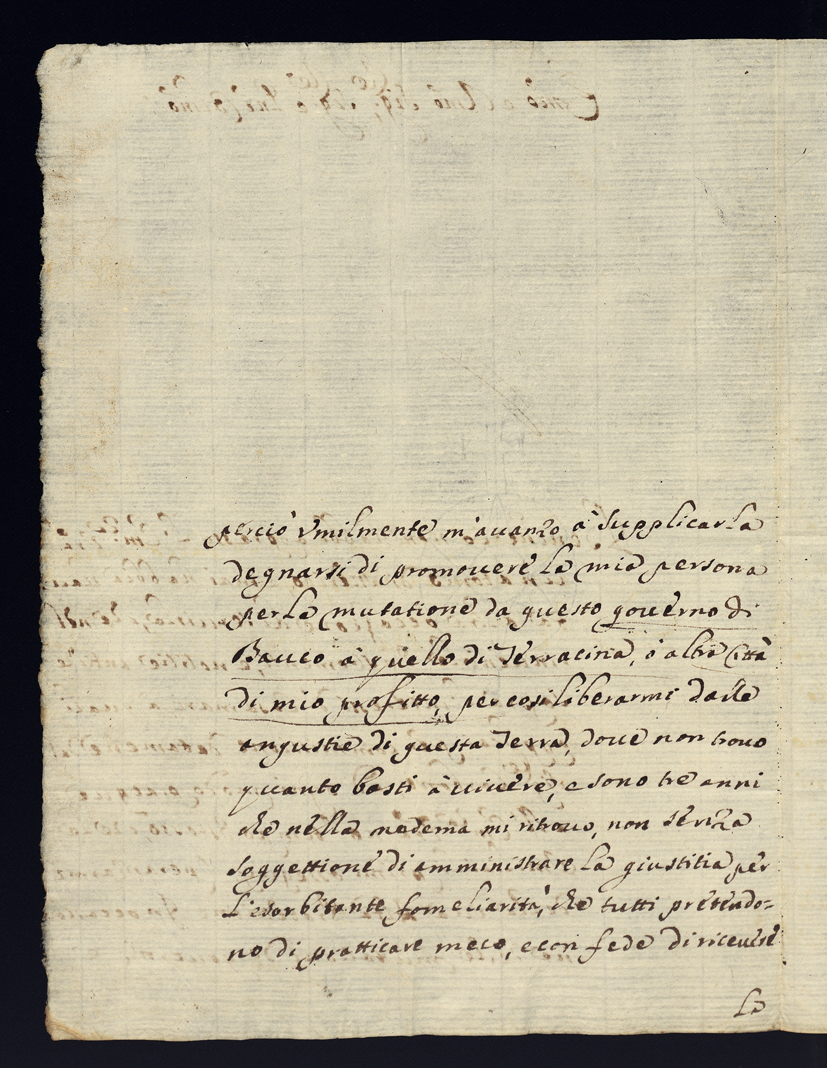 perciò vmilmente m'auanzo à supplicarla
degnarsi di promouere la mia persona
per la mutatione da questo gouerno di
Bauco à quello di Terracina, ò altra Città
di mio profitto, per cosi liberarmi dalle
angustie di questa Terra, doue non trouo
quanto basti à viuere, e sono tre anni
che nella medema mi ritrouo, non senza
soggettione di amministrare la giustitia per
l'esorbitante fameliarità, che tutti pretendo=
no di pratticare meco, e con fede di riceuere
la